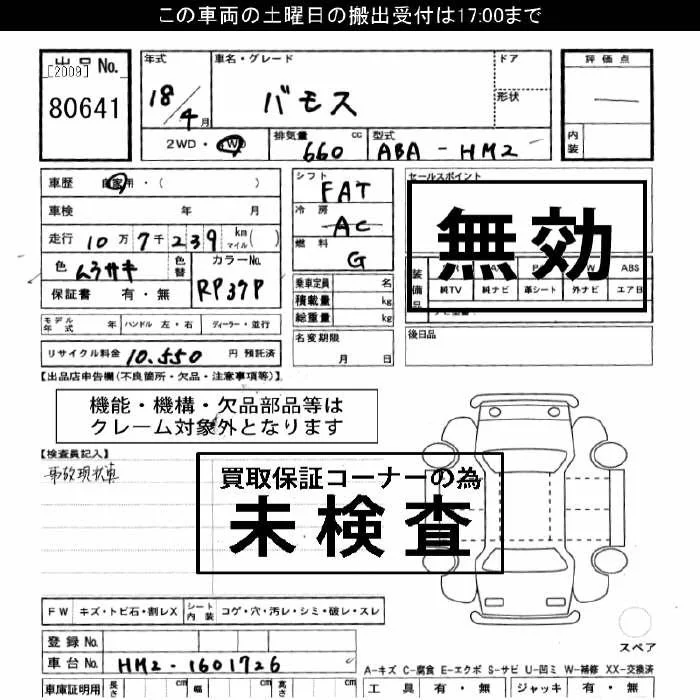 この車両の土曜日の搬出受付は17:00まで
出品No.
[2009]
80641
年式
18/4月
車名・グレード
バモス
ドア
形状
評価点
内装
2WD・4WD
排気量 cc
660
型式
ABA-HM2
車歴 自家用・( )
車検 年 月
走行 10万7千239 km マイル( )
色 ムラサキ
色替
カラーNo.
RP37P
保証書 有・無
シフト
FAT
冷房
AC
燃料
G
乗車定員 名
積載量 kg
総重量 kg
セールスポイント
無効
装備品
ABS
純TV 純ナビ 革シート 外ナビ エアB
モデル年式 年 ハンドル 左・右 ディーラー・並行
リサイクル料金 10.550 円 預託済
名変期限
月 日
後日品
【出品店申告欄(不良箇所・欠品・注意事項等)】
機能・機構・欠品部品等は
クレーム対象外となります
【検査員記入】
事故現状車
買取保証コーナーの為
未検査
FW キズ・トビ石・割レX
シート内装 コゲ・穴・汚レ・シミ・破レ・スレ
登録No.
車台No. HM2-1601726
スペア
A-キズ C-腐食 E-エクボ S-サビ U-凹ミ W-補修 XX-交換済
車庫証明用 長さ cm 幅 cm 高さ cm
工具 有・無 ジャッキ 有・無